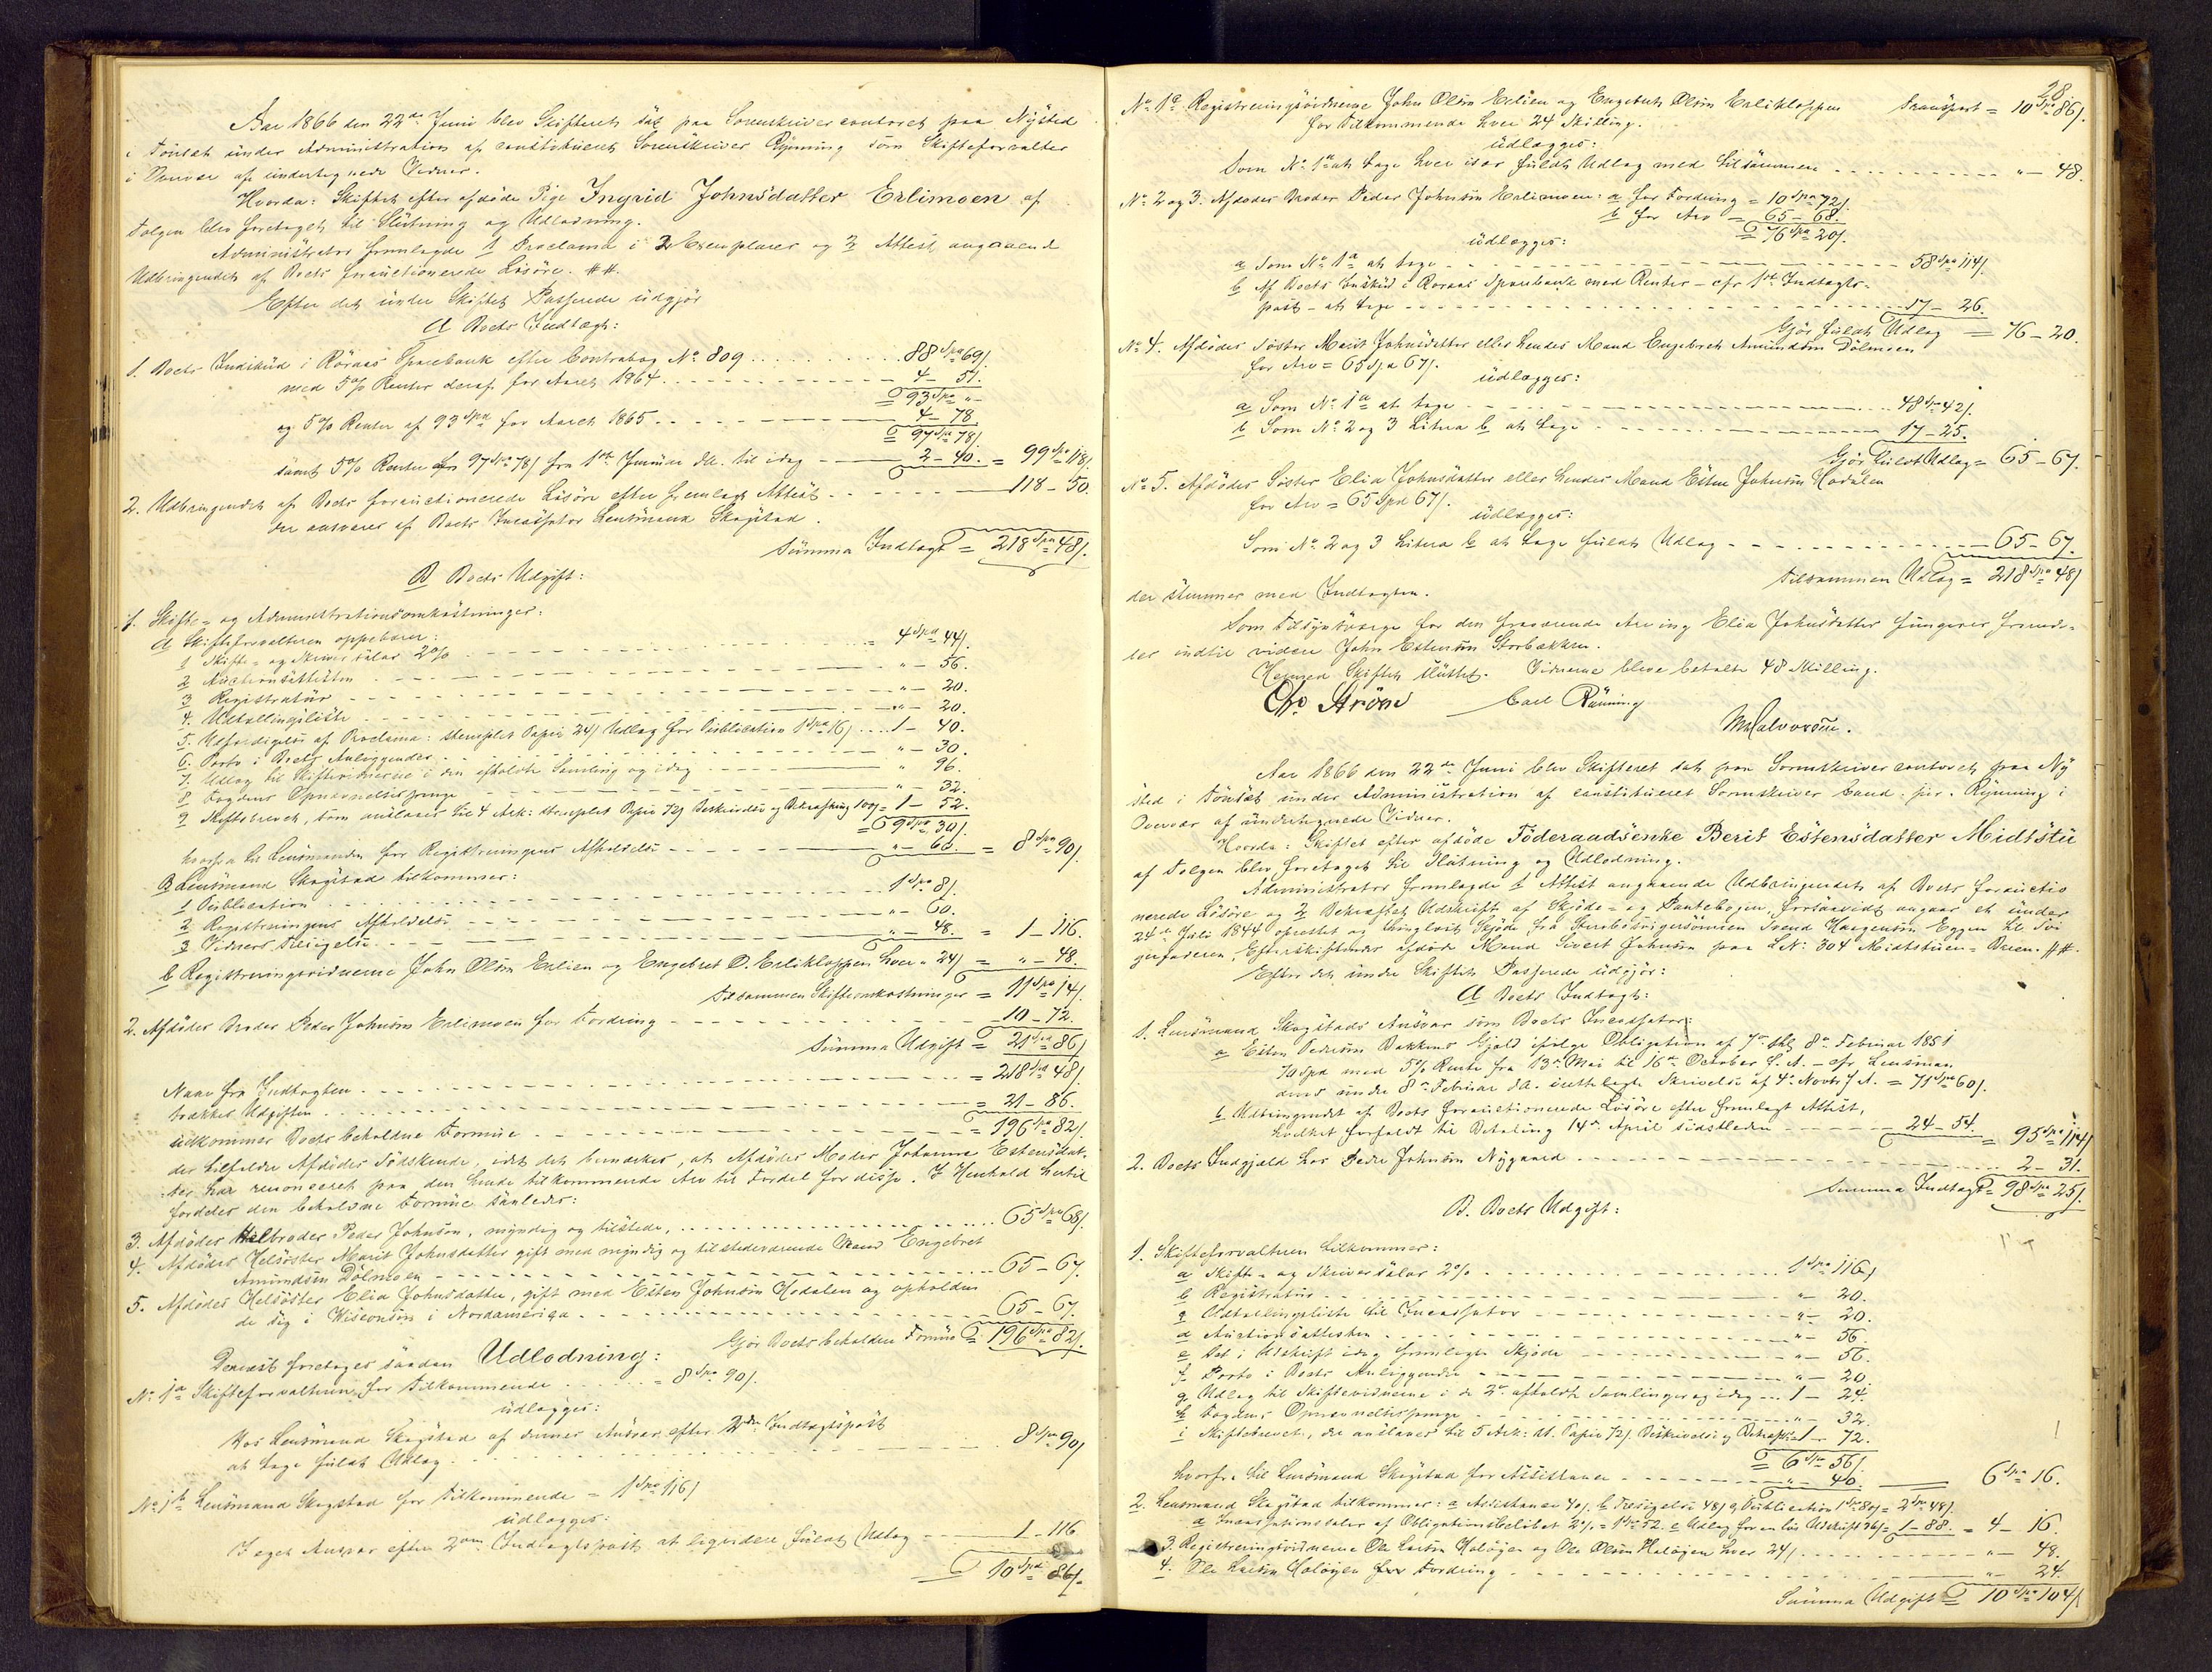 Aar 1866 den 22de Juni blev Skifteret sat paa Sorenskrivercontoret paa Nysted
i Tönset under Administration af constitueret Sorenskriver Rynning som Skifteforvalter
i Overvær af undertegnede Vidner.
Hvorda: Skiftet efter afdöde Pige Ingrid Johnsdatter Erlimoen af
Tolgen blev foretaget til Slutning og Udlodning.
Administrator fremlagde 1 Proclama i 3 Exemplarer og 2 Attest angaaende
Udbringendet af Boets forauctionerede Lösöre. ##.
Efter det under Skiftet Passerede udgjör
A Boets Indtægt:
1. Boets Indskud i Röraas Sparebank efter Contrabog No 809 . . . 88 Spd 69/.
med 5% Renter deraf for Aaret 1864 . . . 4 - 51.
= 93 Spd "-
og 5% Renter af 93 Spd for Aaret 1865 . . . 4 - 78
= 97 Spd 78/.
samt 5% Renter af 97 Spd 78/ fra 1ste Januar d.A. til idag 2 - 40. = 99 Spd 118/.
2. Udbringendet af Boets forauctionerede Lösöre efter fremlagt Attest . . . 118 - 50.
der ansvares af Boets Incassator Lensmand Skogstad.
Summa Indtægt = 218 Spd 48/.
B Boets Udgift:
1. Skifte- og Administrationsomkostninger:
a Skifteforvalteren oppebærer:
1 Skifte- og Skriversalar 2% . . . = 4 Spd 44/.
2 Auctionsattesten . . . " - 56.
3 Registratur . . . " - 20.
4. Udtællingsliste . . . " - 20.
5. Udfærdigelse af Proclama: stemplet Papir 24/ Udlæg for Publication 1 Spd 16/ . . . 1 - 40.
6. Porto i Boets Anliggender . . . " - 30.
7. Udlæg til Skiftevidnerne i den afholdte Samling og idag . . . " 96.
8 Fogdens Opnævnelsespenge . . . " 32.
9 Skiftebrevet, som anslaaes til 4 Ark: stemplet Papir 72/ Beskrivelse og Bekræftning 100/ = 1 - 52.
= 9 Spd 30/.
hvorfra til Lensmanden for Registreringens Afholdelse . . . " - 60. = 8 Spd 90/.
B Lensmand Skogstad tilkommer:
1 Publication . . . 1 Spd 8/.
2 Registreringens Afholdelse . . . " - 60.
3 Vidners Tilsigelse . . . " - 48. = 1 - 116.
b Registreringsvidnerne John Olsen Erlien og Engebret O. Erlikloppen hver " 24/ = " - 48.
tilsammen Skifteomkostninger = 11 Spd 14/.
2. Afdödes Broder Peder Johnsen Erlimoen for Fordring . . . 10 - 72.
Summa Udgift = 21 Spd 86/
Naar fra Indtægten . . . = 218 Spd 48/.
trækkes Udgiften . . . = 21 - 86.
udkommer Boets beholdne Formue . . . = 196 Spd 82/.
der tilfalder Afdödes Södskende, idet det bemærkes, at Afdödes Moder Johanna Estensdat-
ter har renonceret paa den hende tilkommende Arv til Fordel for disse. I Henhold hertil
fordeles den beholdne Formue saaledes:
3. Afdödes Helbroder Peder Johnsen, myndig og tilstede, . . . 65 Spd 68/.
4. Afdödes Helsöster Marit Johnsdatter gift med myndig og tilstedeværende Mand Engebret
Amundsen Dölmoen . . . 65 - 67.
5. Afdödes Helsöster Elia Johnsdatter, gift med Esten Johnsen Hodalen og opholden
de sig i Wisconsin i Nordamerika . . . 65 - 67.
Gjör Boets beholdne Formue = 196 Spd 82/.
Dernæst foretoges saadan Udlodning:
No 1a Skifteforvalteren for Tilkommende . . . = 8 Spd 90/.
udlægges:
Hos Lensmand Skogstad af dennes Ansvar efter 2den Indtægtspost
at tage fuldt Udlæg . . . 8 Spd 90/
No 1b Lensmand Skogstad for Tilkommende = 1 Spd 116/
udlægges:
I eget Ansvar efter 2den Indtægtspost at liqvidere fuldt Udlæg . . . 1 - 116
= 10 Spd 86/.
28.
No 1c Registreringsvidnerne John Olsen Erlien og Engebret Olsen Erlikloppen Transport = 10 Spd 86/.
for Tilkommende hver 24 Skilling.
udlægges:
Som No 1a at tage hver især fuldt Udlæg med tilsammen . . . " - 48.
No 2 og 3. Afdödes Broder Peder Johnsen Erlimoen: a for Fordring = 10 Spd 72/.
b for Arv = 65 - 68.
= 76 Spd 20/.
udlægges:
a Som No 1a at tage . . . 58 Spd 114/.
b Af Boets Indskud i Röraas Sparebank med Renter - cfr 1ste Indtægts-
post - at tage . . . 17 - 26.
Gjör fuldt Udlæg = 76 - 20.
No 4. Afdödes Söster Marit Johnsdatter eller hendes Mand Engebret Amundsen Dölmoen
for Arv = 65 Spd 67/.
udlægges:
a Som No 1a at tage . . . 48 Spd 42/.
b Som No 2 og 3 Litra b at tage . . . 17 - 25.
Gjör fuldt Udlæg = 65 - 67.
No 5. Afdödes Söster Elia Johnsdatter eller hendes Mand Esten Johnsen Hodalen
for Arv = 65 Spd 67/.
udlægges:
Som No 2 og 3 Litra b at tage fuldt Udlæg . . . 65 - 67.
Tilsammen Udlæg = 218 Spd 48/
der stemmer med Indtægten.
Som Tilsynsværge for den fraværende Arving Elia Johnsdatter fungerer fremde-
les indtil videre John Estensen Storbækken.
Hermed Skiftet sluttet. Vidnerne bleve betalte 48 Skilling.
Chr Ström Carl Rünning
MHalvorsen.
Aar 1866 den 22de Juni blev Skifteret sat paa Sorenskrivercontoret paa Ny
sted i Tönset under Administration af constitueret Sorenskriver Cand. jur. Rynning i
Overvær af undertegnede Vidner.
Hvorda: Skiftet efter afdöde Föderaadsenke Berit Estensdatter Midtstu
af Tolgen blev foretaget til Slutning og Udlodning.
Administrator fremlagde 1 Attest angaaende Udbringendet af Boets forauctio
nerede Lösöre og 2 Bekræftet Udskrift af Skjöde- og Pantebogen, forsaavidt angaar et under
24de Juli 1844 oprettet og thinglæst Skjöde fra Sterbosvigersönnen Svend Haagensen Eggen til Svi
gerfaderen, Efterskiftendes afdöde Mand Sivert Johnsen paa L.No: 304 Midtstuen-Vreen. ##.
Efter det under Skiftet Passerede udgjör:
A Boets Indtægt:
1. Lensmand Skogstads Ansvar som Boets Incassator:
a Esten Pedersen Bakkens Gjæld ifölge Obligation af 7de thl 8de Februar 1851
70 Spd med 5% Rente fra 13de Mai til 16de October f. A. - cfr Lensman
dens under 8de Februar d.A. indtagte Skrivelse af 4de Novbr f. A. = 71 Spd 60/.
b Udbringendet af Boets forauctionerede Lösöre efter fremlagt Attest,
hvilket forfaldt til Betaling 14de April sidstleden . . . 24 - 54. = 95 Spd 114/
2. Boets Indgjæld hos Peder Johnsen Nygaard . . . 2 - 31.
Summa Indtægt = 98 Spd 25/.
B. Boets Udgift:
1. Skifteforvalteren tilkommer:
a Skifte- og Skriversalar 2% . . . 1 Spd 116/
b Registratur . . . " - 20.
c Udtællingsliste til Incassator . . . " - 20.
d Auctionsattesten . . . " - 56.
e Det i Udskrift idag fremlagte Skjöde . . . " - 56.
f Porto i Boets Anliggender . . . " - 20.
g Udlæg til Skiftevidnerne i de 2de afholdte Samlinger og idag . . . 1 - 24.
h Fogdens Opnævnelsespenge . . . " - 32.
i Skiftebrevet, der anslaaes til 5 Ark: st. Papir 72/. Beskrivelse og Bekræftn. 1 - 72.
= 6 Spd 56/.
hvorfra til Lensmand Skogstad for Assistance . . . " - 40. 6 Spd 16.
2. Lensmand Skogstad tilkommer: a Assistance 40/. b Tilsigelse 48/ c Publication 1 Spd 80/ = 2 Spd 48/.
d Incassationssalar af Obligationsbelöbet 2% = 1 Spd 52. e Udlæg for en lös Udskrift 36/ = 1 - 88. = 4 - 16.
3. Registreringsvidnerne Ole Larsen Holöyen og Ole Olsen Holöyen hver 24/. . . . " - 48.
4. Ole Larsen Holöyen for Fordring . . . " - 24.
Summa Udgift = 10 Spd 104/